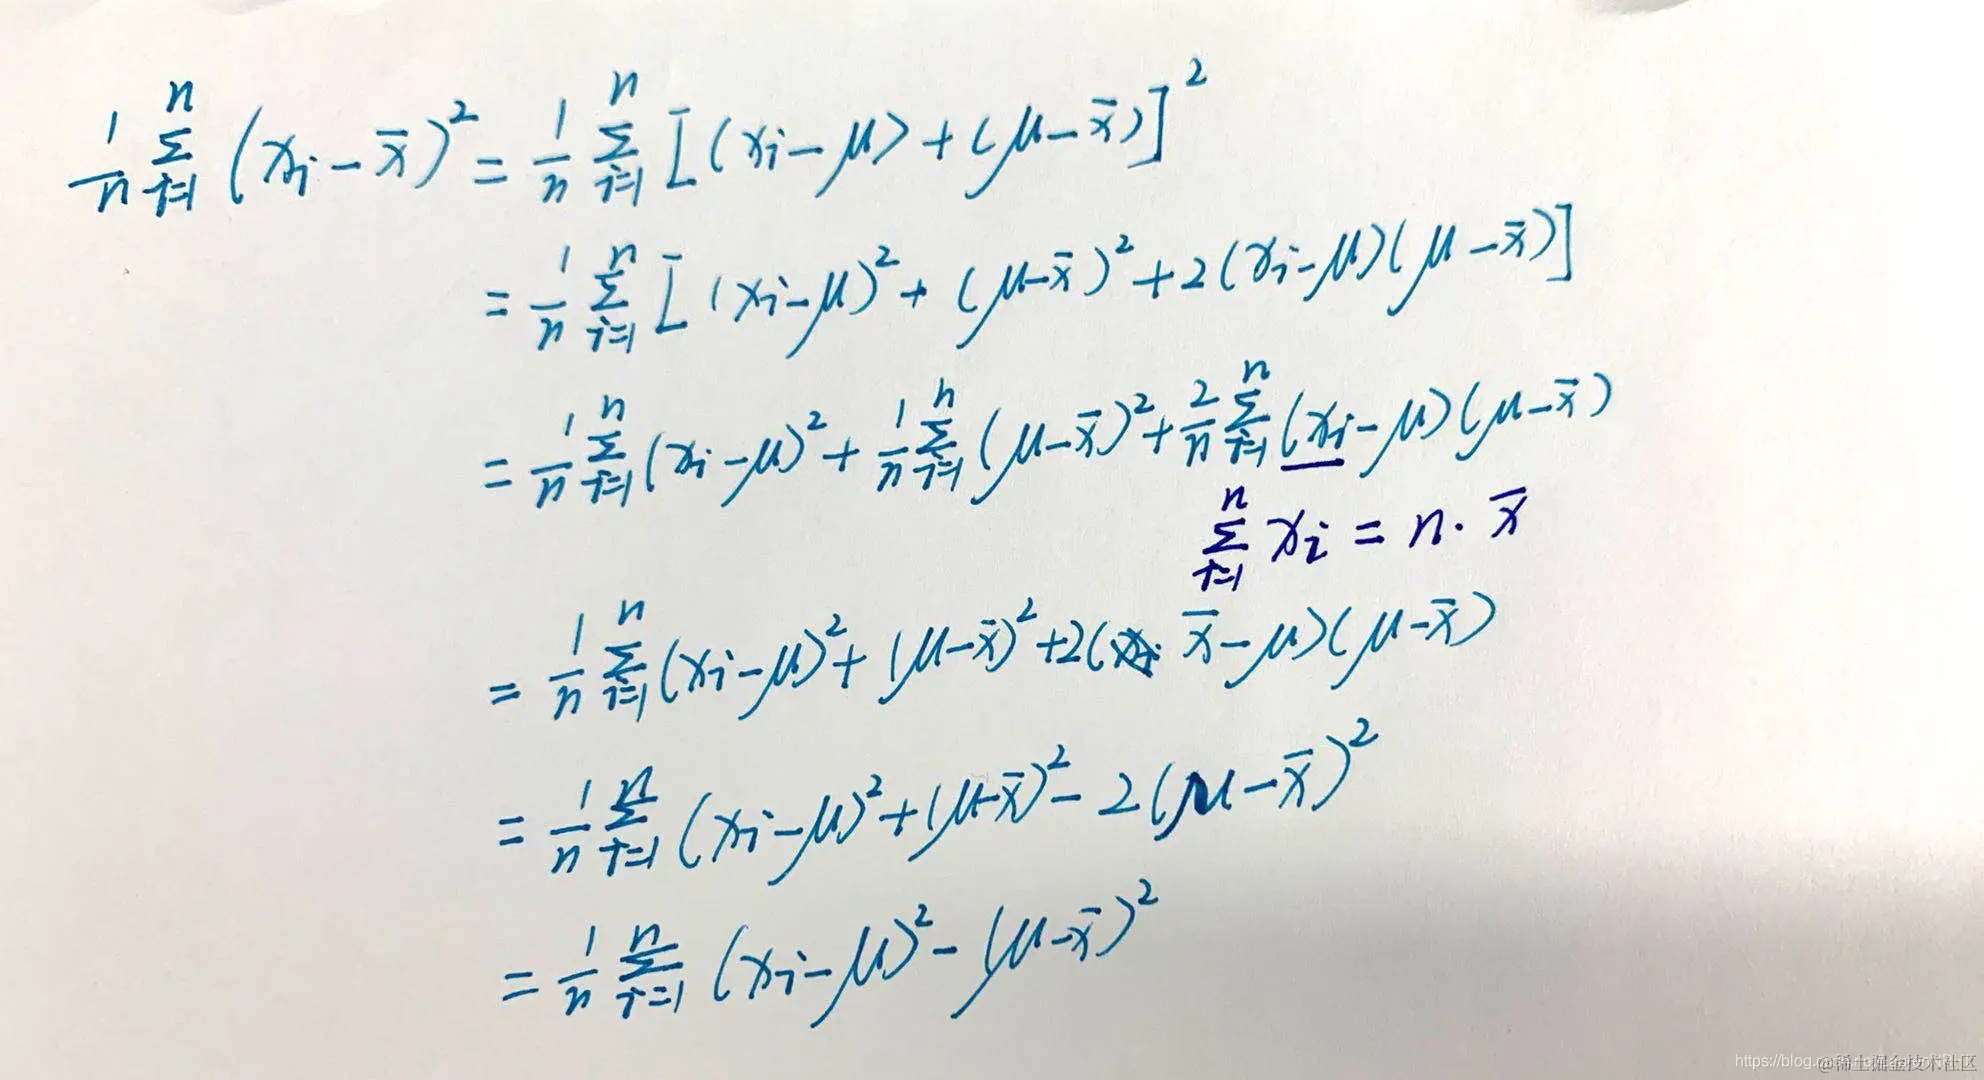 1/n Σ_{i=1}^{n} (x_i − x̄)² = 1/n Σ_{i=1}^{n} [(x_i − μ) + (μ − x̄)]²
= 1/n Σ_{i=1}^{n} [(x_i − μ)² + (μ − x̄)² + 2(x_i − μ)(μ − x̄)]
= 1/n Σ_{i=1}^{n} (x_i − μ)² + 1/n Σ_{i=1}^{n} (μ − x̄)² + 2/n Σ_{i=1}^{n} (x_i − μ)(μ − x̄)
Σ_{i=1}^{n} x_i = n · x̄
= 1/n Σ_{i=1}^{n} (x_i − μ)² + (μ − x̄)² + 2(x̄ − μ)(μ − x̄)
= 1/n Σ_{i=1}^{n} (x_i − μ)² + (μ − x̄)² − 2(μ − x̄)²
= 1/n Σ_{i=1}^{n} (x_i − μ)² − (μ − x̄)²
https://blog. @稀土掘金技术社区